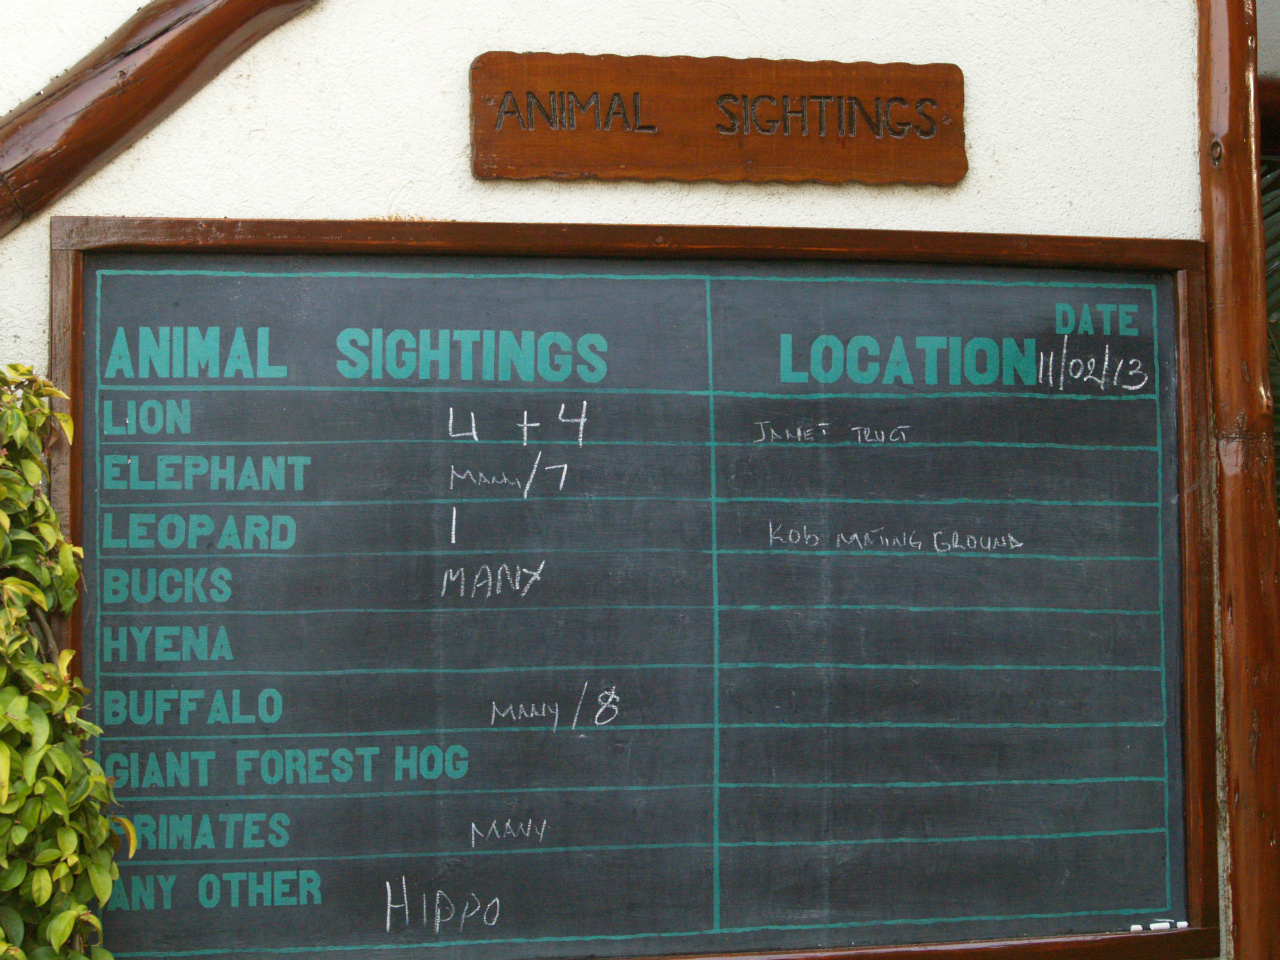 ANIMAL SIGHTINGS
DATE
ANIMAL SIGHTINGS LOCATION 11/02/13
LION 4 + 4 JANET TRUCT
ELEPHANT MANY/7
LEOPARD 1 Kob MATING GROUND
BUCKS MANY
HYENA
BUFFALO MANY/8
GIANT FOREST HOG
PRIMATES MANY
ANY OTHER HIPPO